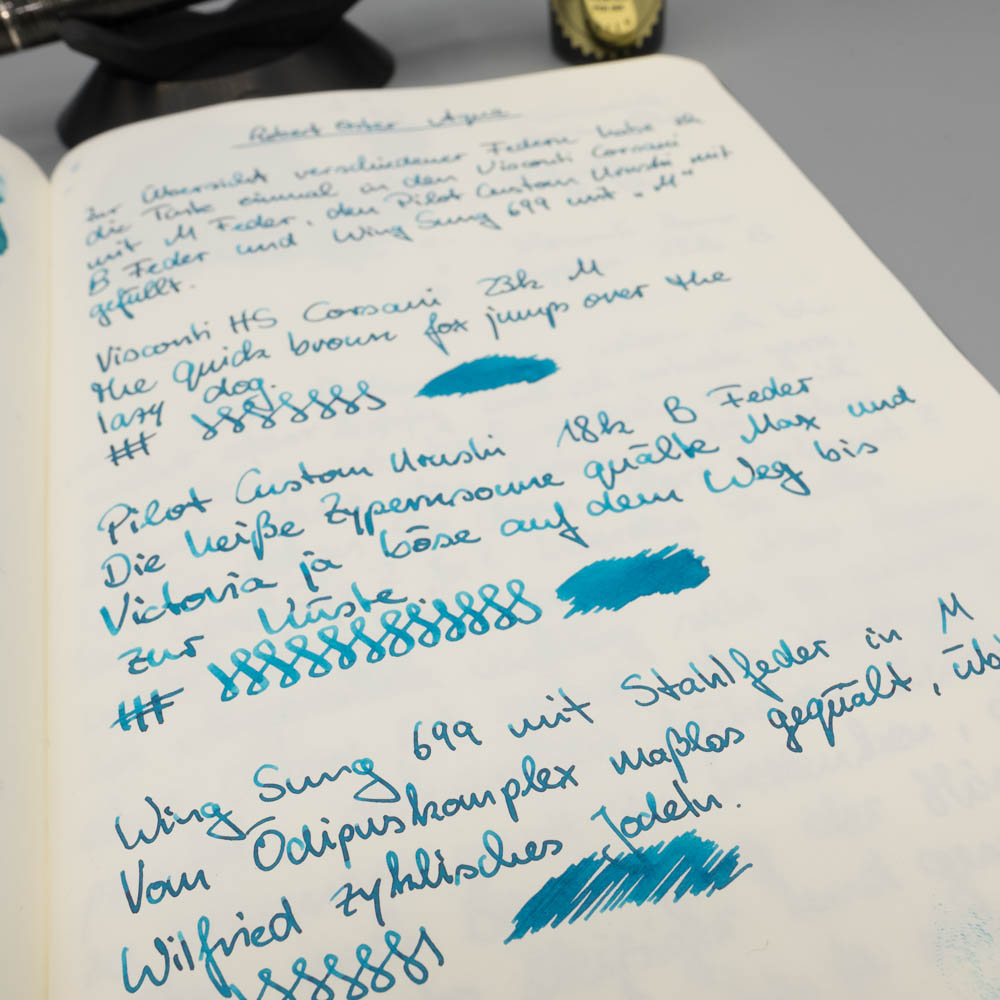 Robert Oster Aqua
Zur Übersicht verschiedener Federn habe ich
die Tinte einmal in den Visconti Corsani
mit M Feder, den Pilot Custom Urushi mit
B Feder und Wing Sung 699 mit "M"
gefüllt.
Visconti HS Corsani 23k M
the quick brown fox jumps over the
lazy dog.
Pilot Custom Urushi 18k B Feder
Die heiße Zypernsonne quälte Max und
Victoria ja böse auf dem Weg bis
zur Küste.
Wing Sung 699 mit Stahlfeder in M
Vom Ödipuskomplex maßlos gequält, üb
Wilfried zyklisches Jodeln.